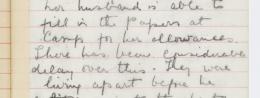 her husband is able to
fill in the Papers at
Camp for her allowances.
There has been considerable
delay over this. They were
living apart before he